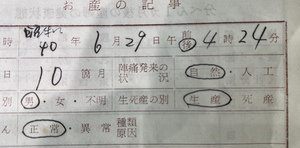 お産の記事
時 昭和 40年6月29日午前後4時24分
日 10箇月 陣痛発来の状況 自然・人工
別 男・女・不明 生死産の別 生産 死産
ん 正常・異常 種類 原因